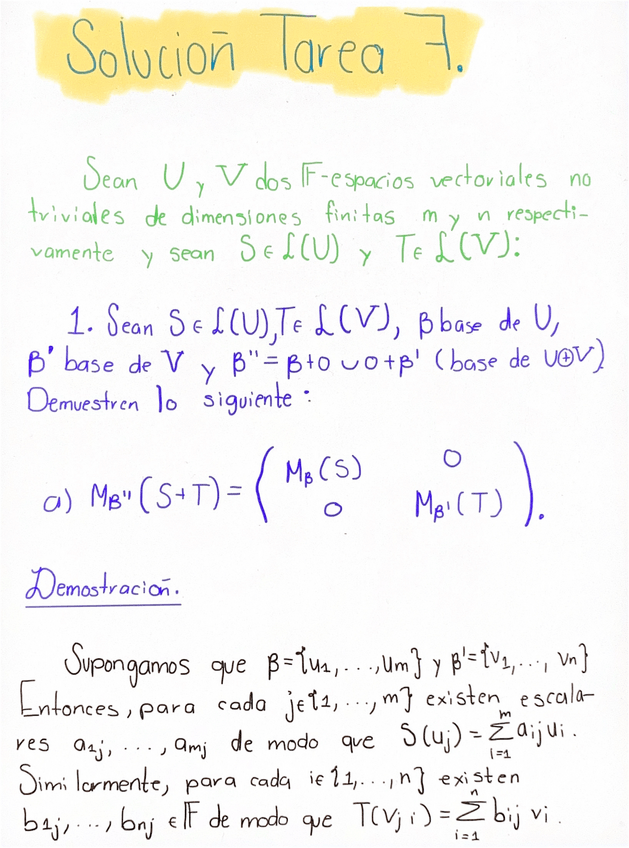 Solucioñ Tarea 7.
Sean U y V dos 𝔽-espacios vectoriales no
triviales de dimensiones finitas m y n respecti-
vamente y sean S ∈ ℒ(U) y T ∈ ℒ(V):
1. Sean S ∈ ℒ(U), T ∈ ℒ(V), β base de U,
β' base de V y β'' = β+0 ∪ 0+β' (base de U⊕V)
Demuestren lo siguiente:
a) M_β''(S+T) = ( M_β(S) 0
0 M_β'(T) ).
Demostracioñ.
Supongamos que β={u_1,...,u_m} y β'={v_1,..., v_n}
Entonces, para cada j∈{1,...,m} existen escala-
res a_1j, ..., a_mj de modo que S(u_j) = ∑_{i=1}^{m} a_ij u_i.
Similarmente, para cada i∈{1,...,n} existen
b_1j,..., b_nj ∈ 𝔽 de modo que T(v_j i) = ∑_{i=1}^{n} b_ij v_i.